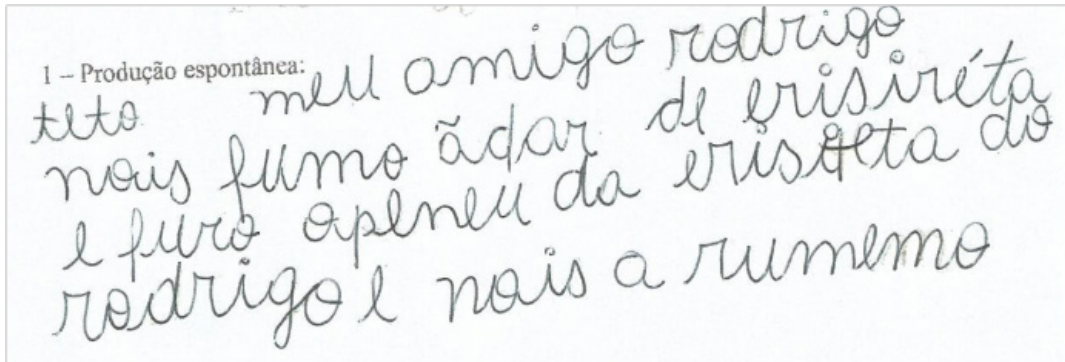 1 – Produção espontânea:
teto meu amigo rodrigo
nois fumo ãdar de erisiréta
e furo openeu da erisoeta do
rodrigo e nois a rumemo